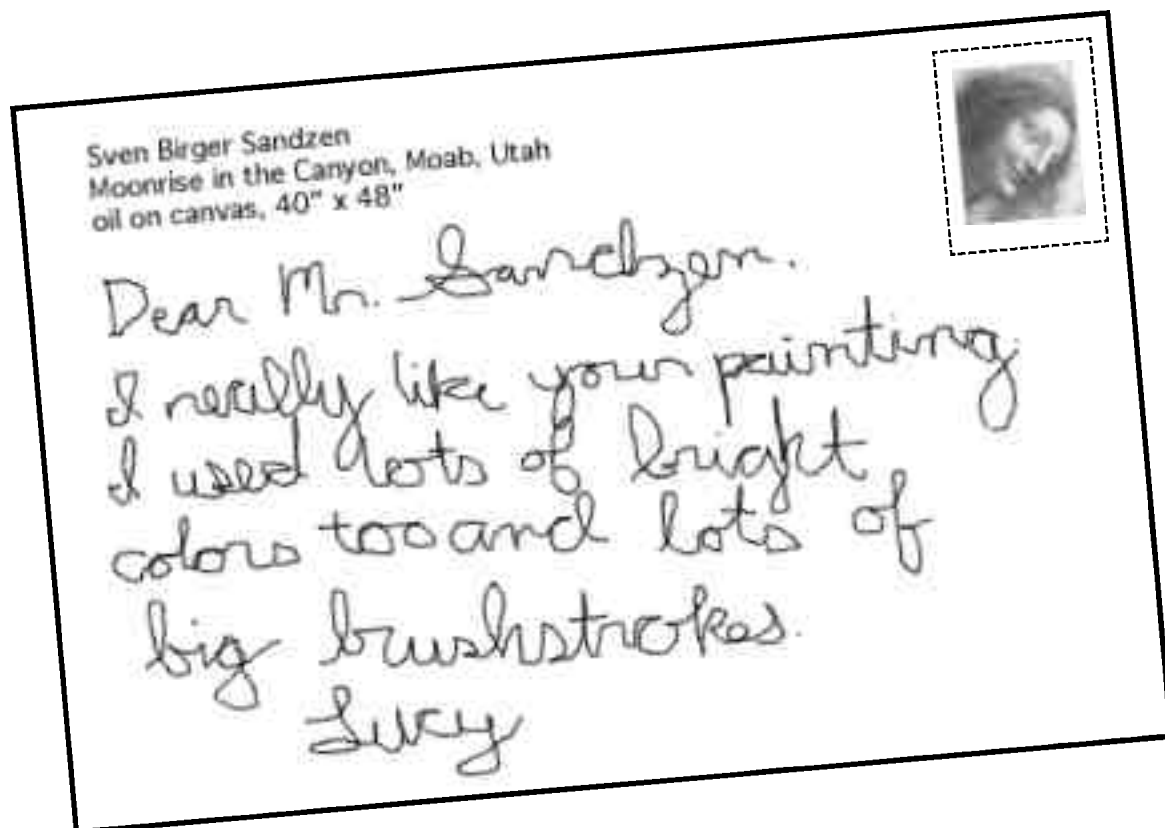 Sven Birger Sandzen
Moonrise in the Canyon, Moab, Utah
oil on canvas, 40" x 48"
Dear Mr. Sandzen.
I really like your painting.
I used lots of bright
colors too and lots of
big brushstrokes.
Lucy